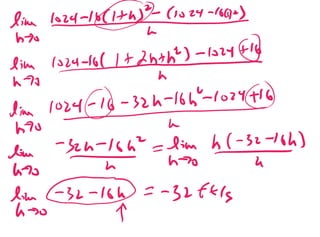 lim h→0 1024-16(1+h)² - (1024-16(1)²) / h
lim h→0 1024-16(1+2h+h²) - 1024 +16 / h
lim h→0 1024 -16 -32h -16h² -1024 +16 / h
lim h→0 -32h-16h² / h = lim h→0 h(-32-16h) / h
lim h→0 -32-16h = -32 ft/s